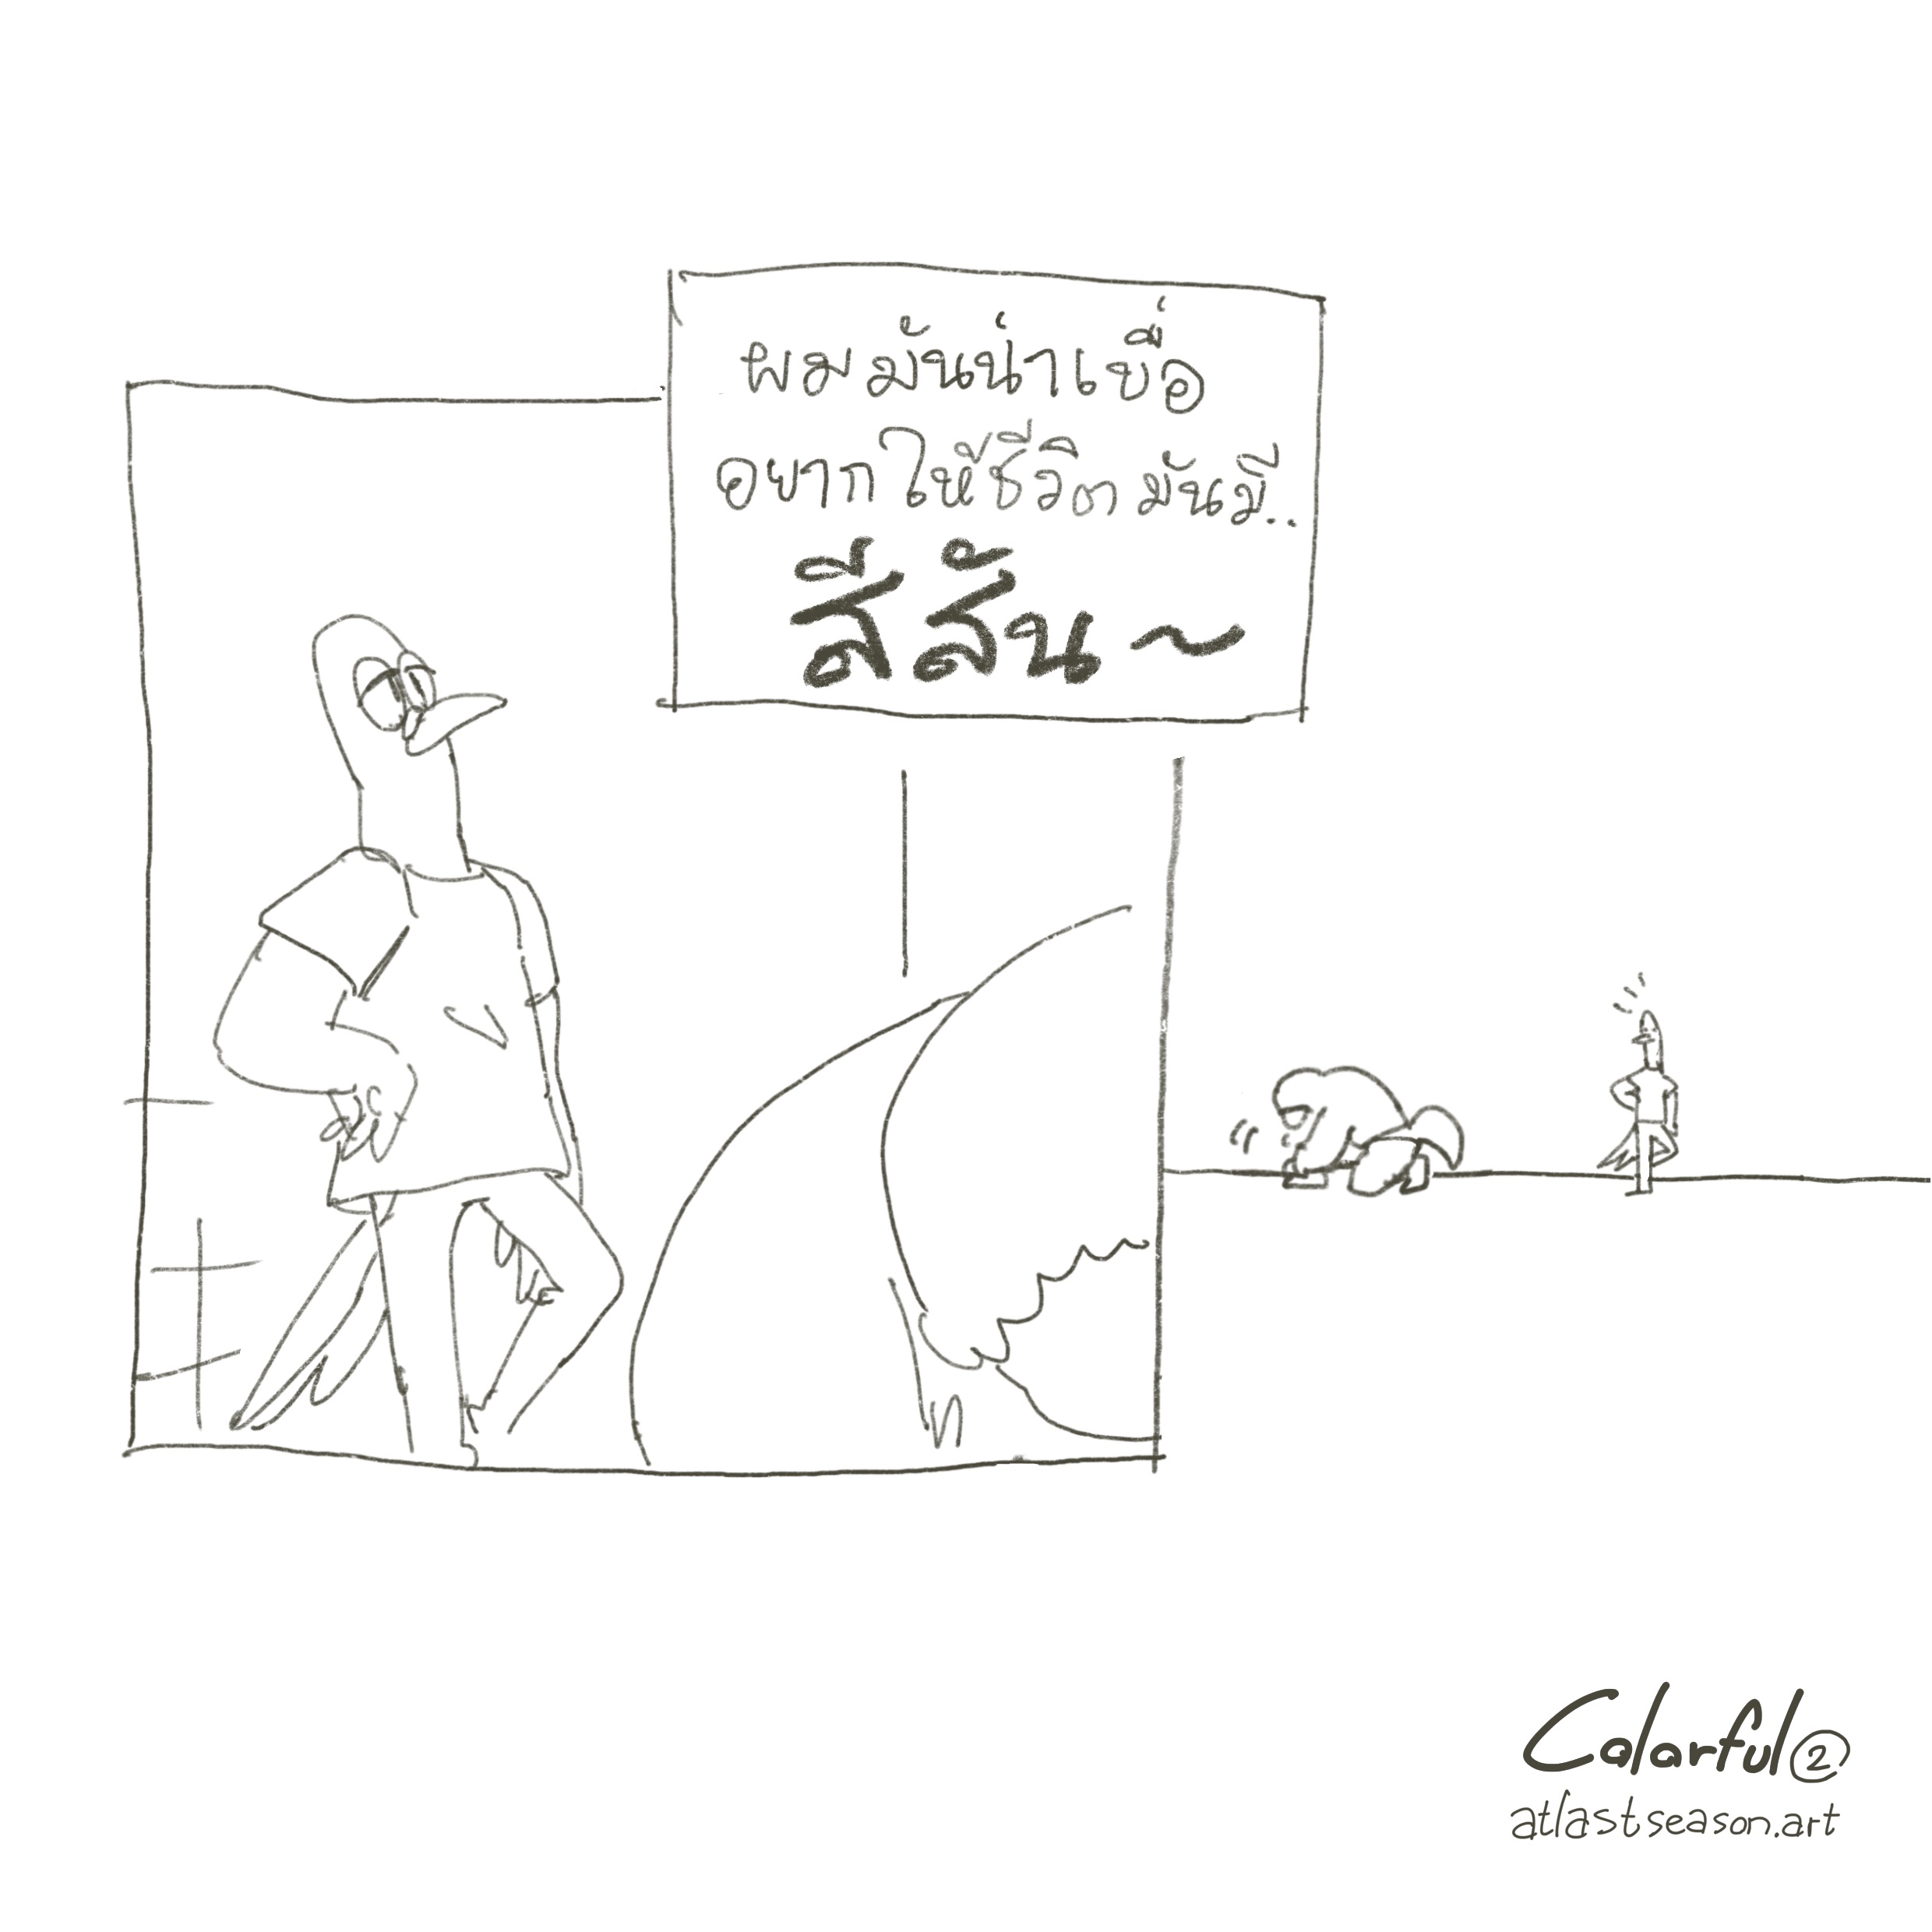 ผมมันน่าเบื่อ
อยากให้ชีวิตมันมี..
สีสัน~
Colorful ②
atlastseason.art